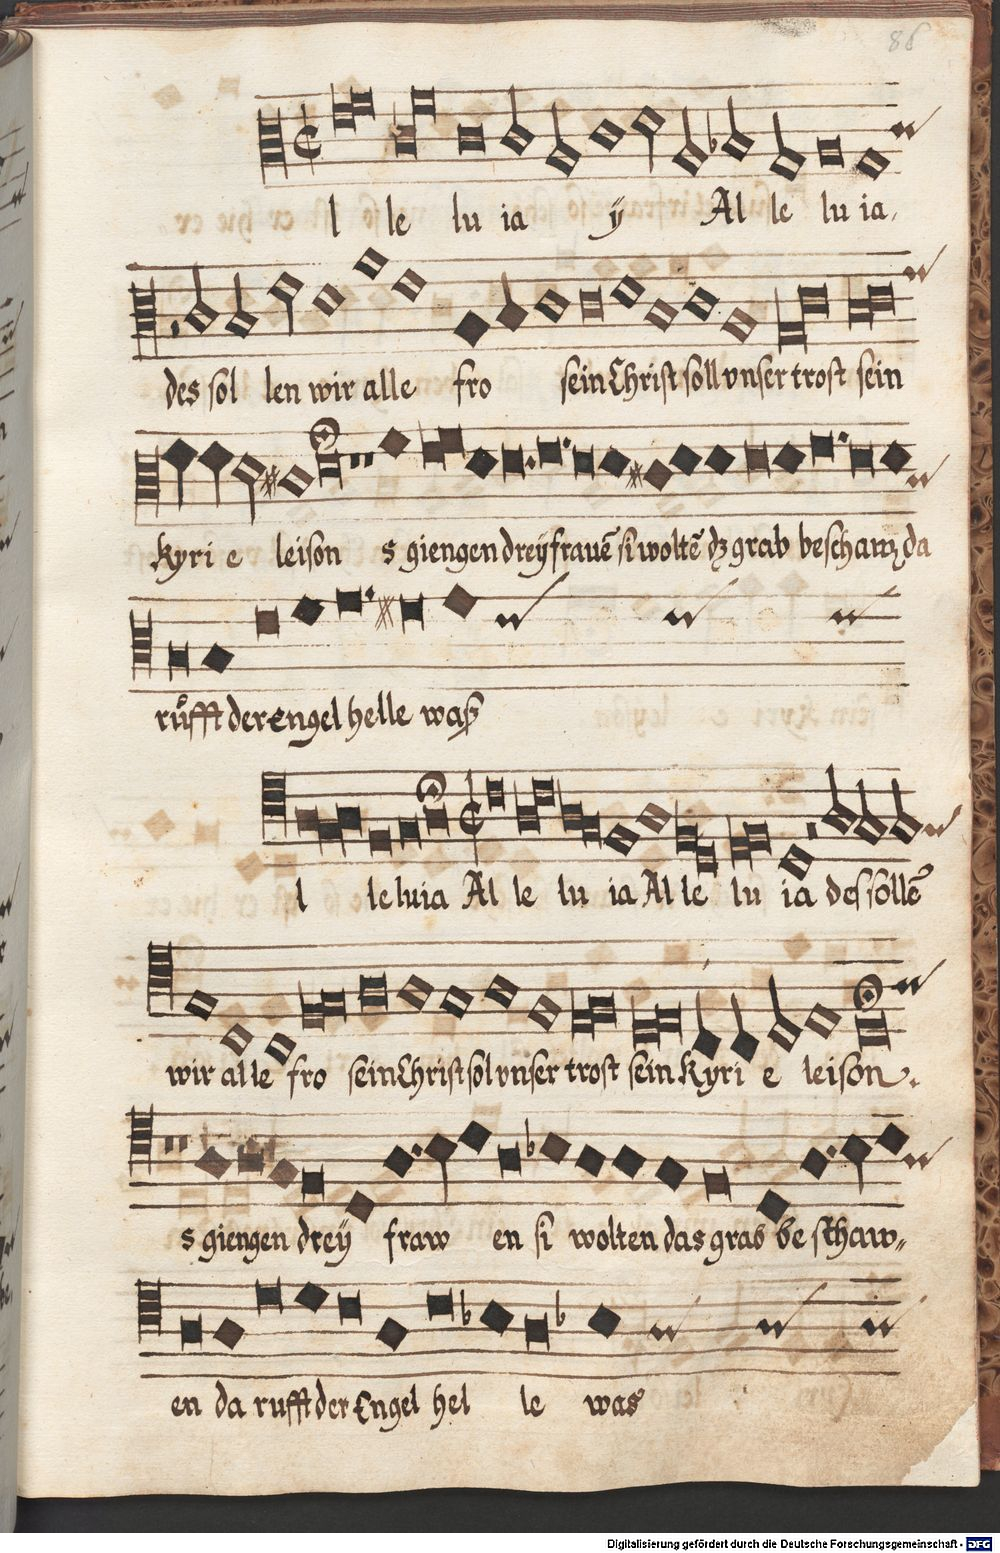 86
l le lu ia ij Al le lu ia.
des sol len wir alle fro sein Christ soll vnser trost sein
kyri e leison s giengen dreÿ frauē si woltē dz grab beschauw da
růfft der engel helle waß
l le luia Al le lu ia Al le lu ia des sollē
wir alle fro sein Christ sol vnser trost sein kyri e leison.
s giengen dreÿ fraw en si wolten das grab be schaw„
en da rufft der Engel hel le was
Digitalisierung gefördert durch die Deutsche Forschungsgemeinschaft - DFG